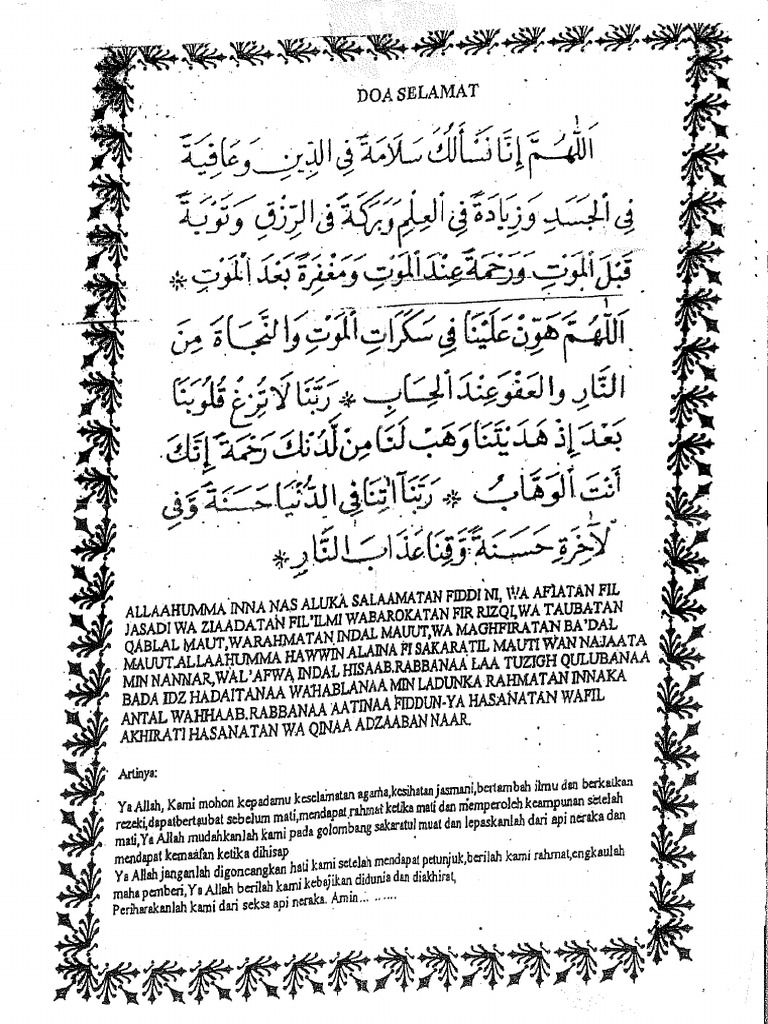 DOA SELAMAT
اَللّٰهُمَّ إِنَّا نَسْأَلُكَ سَلَامَةً فِي الدِّينِ وَعَافِيَةً
فِي الْجَسَدِ وَزِيَادَةً فِي الْعِلْمِ وَبَرَكَةً فِي الرِّزْقِ وَتَوْبَةً
قَبْلَ الْمَوْتِ وَرَحْمَةً عِنْدَ الْمَوْتِ وَمَغْفِرَةً بَعْدَ الْمَوْتِ *
اَللّٰهُمَّ هَوِّنْ عَلَيْنَا فِي سَكَرَاتِ الْمَوْتِ وَالنَّجَاةَ مِنَ
النَّارِ وَالعَفْوَ عِنْدَ الْحِسَابِ * رَبَّنَا لَا تُزِغْ قُلُوبَنَا
بَعْدَ إِذْ هَدَيْتَنَا وَهَبْ لَنَا مِنْ لَّدُنْكَ رَحْمَةً إِنَّكَ
أَنْتَ الْوَهَّابُ * رَبَّنَا آتِنَا فِي الدُّنْيَا حَسَنَةً وَّفِي
لْآخِرَةِ حَسَنَةً وَّقِنَا عَذَابَ النَّارِ *
ALLAAHUMMA INNA NAS ALUKA SALAAMATAN FIDDI NI, WA AFIATAN FIL
JASADI WA ZIAADATAN FIL'ILMI WABAROKATAN FIR RIZQI,WA TAUBATAN
QABLAL MAUT,WARAHMATAN INDAL MAUUT,WA MAGHFIRATAN BA'DAL
MAUUT.ALLAAHUMMA HAWWIN ALAINA FI SAKARATIL MAUTI WAN NAJAATA
MIN NANNAR,WAL'AFWA INDAL HISAAB.RABBANAA LAA TUZIGH QULUBANAA
BADA IDZ HADAITANAA WAHABLANAA MIN LADUNKA RAHMATAN INNAKA
ANTAL WAHHAAB.RABBANAA AATINAA FIDDUN-YA HASANATAN WAFIL
AKHIRATI HASANATAN WA QINAA ADZAABAN NAAR.
Artinya:
Ya Allah, Kami mohon kepadamu keselamatan agama,kesihatan jasmani,bertambah ilmu dan berkatkan
rezeki,dapatbertaubat sebelum mati,mendapat rahmat ketika mati dan memperoleh keampunan setelah
mati,Ya Allah mudahkanlah kami pada golombang sakaratul muat dan lepaskanlah dari api neraka dan
mendapat kemaafan ketika dihisap
Ya Allah janganlah digoncangkan hati kami setelah mendapat petunjuk,berilah kami rahmat,engkaulah
maha pemberi,Ya Allah berilah kami kebajikan didunia dan diakhirat,
Periharakanlah kami dari seksa api neraka. Amin... ......